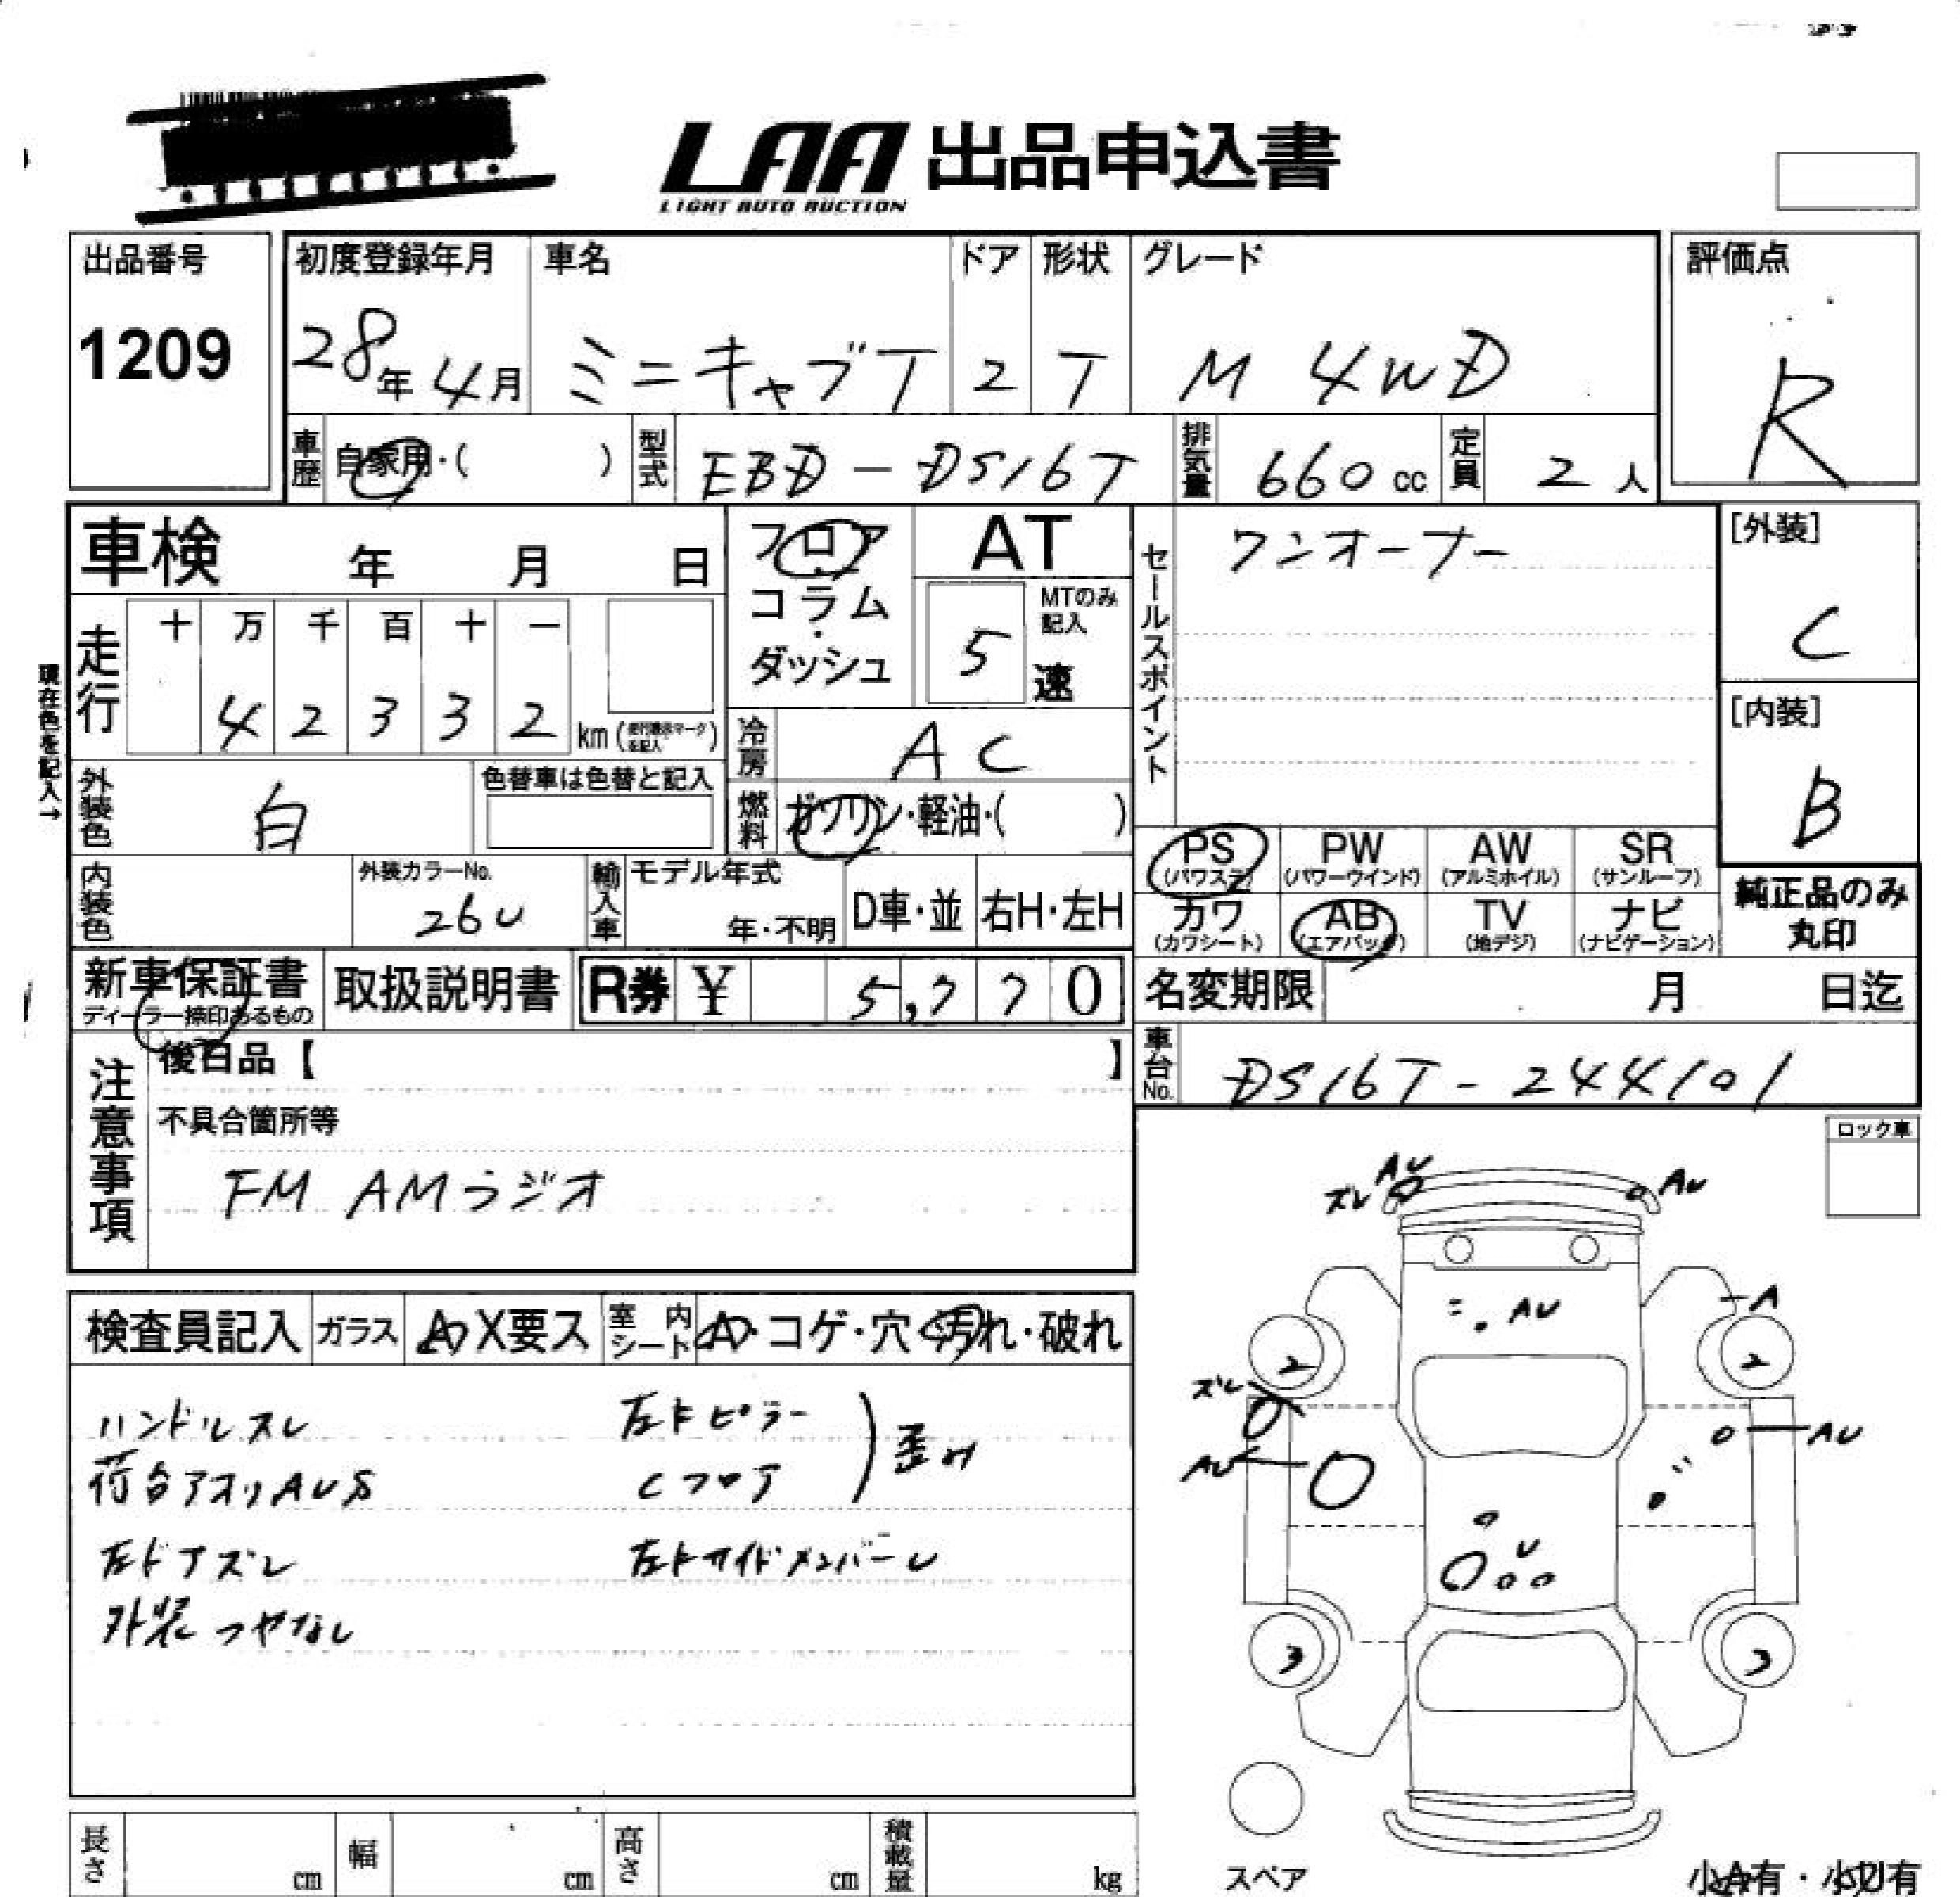 LAA 出品申込書
LIGHT AUTO AUCTION
出品番号
1209
初度登録年月 車名 ドア 形状 グレード
28年4月 ミニキャブT 2 T M 4WD
評価点
R
車歴 自家用・( ) 型式 EBD-DS16T 排気量 660cc 定員 2人
車検 年 月 日
フロア・コラム・ダッシュ
AT
5
MTのみ記入
速
セールスポイント
ワンオーナー
[外装]
C
[内装]
B
現在色を記入→
走行
十 万 千 百 十 一
4 2 3 3 2 km
冷房 AC
外装色 白 色替車は色替と記入
燃料 ガソリン・軽油・( )
PS PW AW SR
(パワステ) (パワーウインド) (アルミホイル) (サンルーフ)
カワ AB TV ナビ
(カワシート) (エアバッグ) (地デジ) (ナビゲーション)
純正品のみ
丸印
内装色 外装カラーNo. 26U
輸入車 モデル年式 年・不明 D車・並 右H・左H
新車保証書
ディーラー捺印あるもの
取扱説明書 R券 ¥ 5,770
名変期限 月 日迄
車台No. DS16T-244101
注意事項
後日品【 】
不具合箇所等
FM AMラジオ
ロック車
検査員記入 ガラス A・X要ス 室内シート A・コゲ・穴・汚れ・破れ
ハンドルスレ
荷台アオリAUS
左ドアズレ
外装つやなし
左Fピラー
Cフロア
歪み
左FサイドメンバーU
AU
ズレ
AU
AU
A
2
2
ズレ
AU
AU
U
3
3
スペア
長さ cm 幅 cm 高さ cm 積載量 kg
小A有・小U有